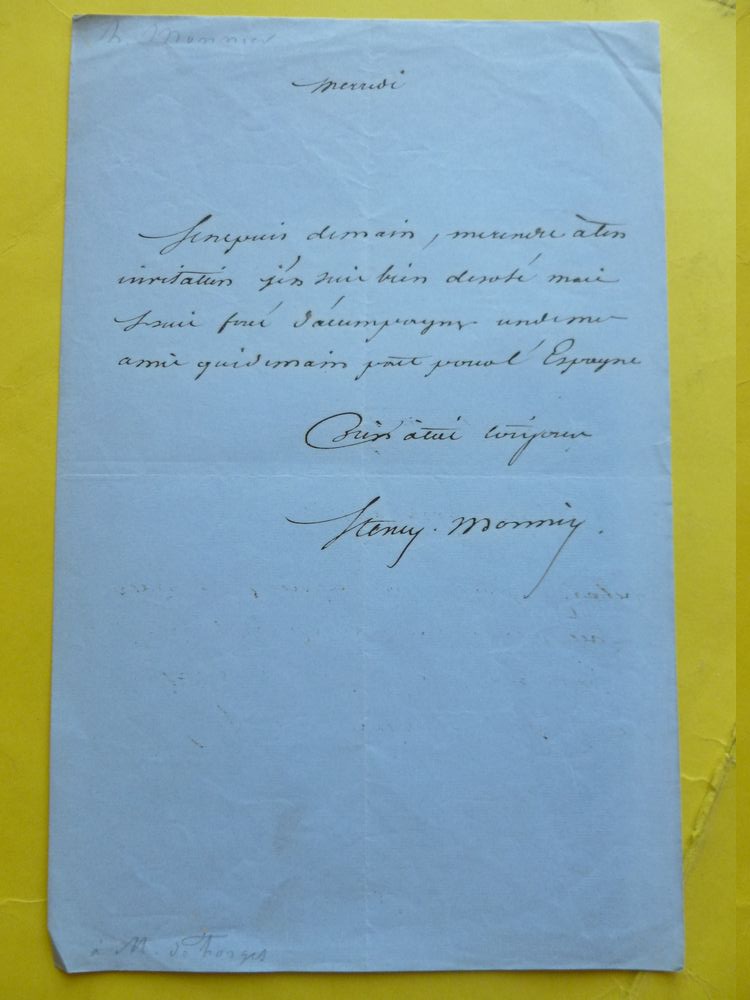 h. Monnier
mercredi
Je ne puis demain, me rendre à ton
invitation j'en suis bien desolé mais
je suis forcé d'accompagner un de mes
amis qui demain part pour l'Espagne
Bien à toi toujours
Henry. Monnier.
à M. de